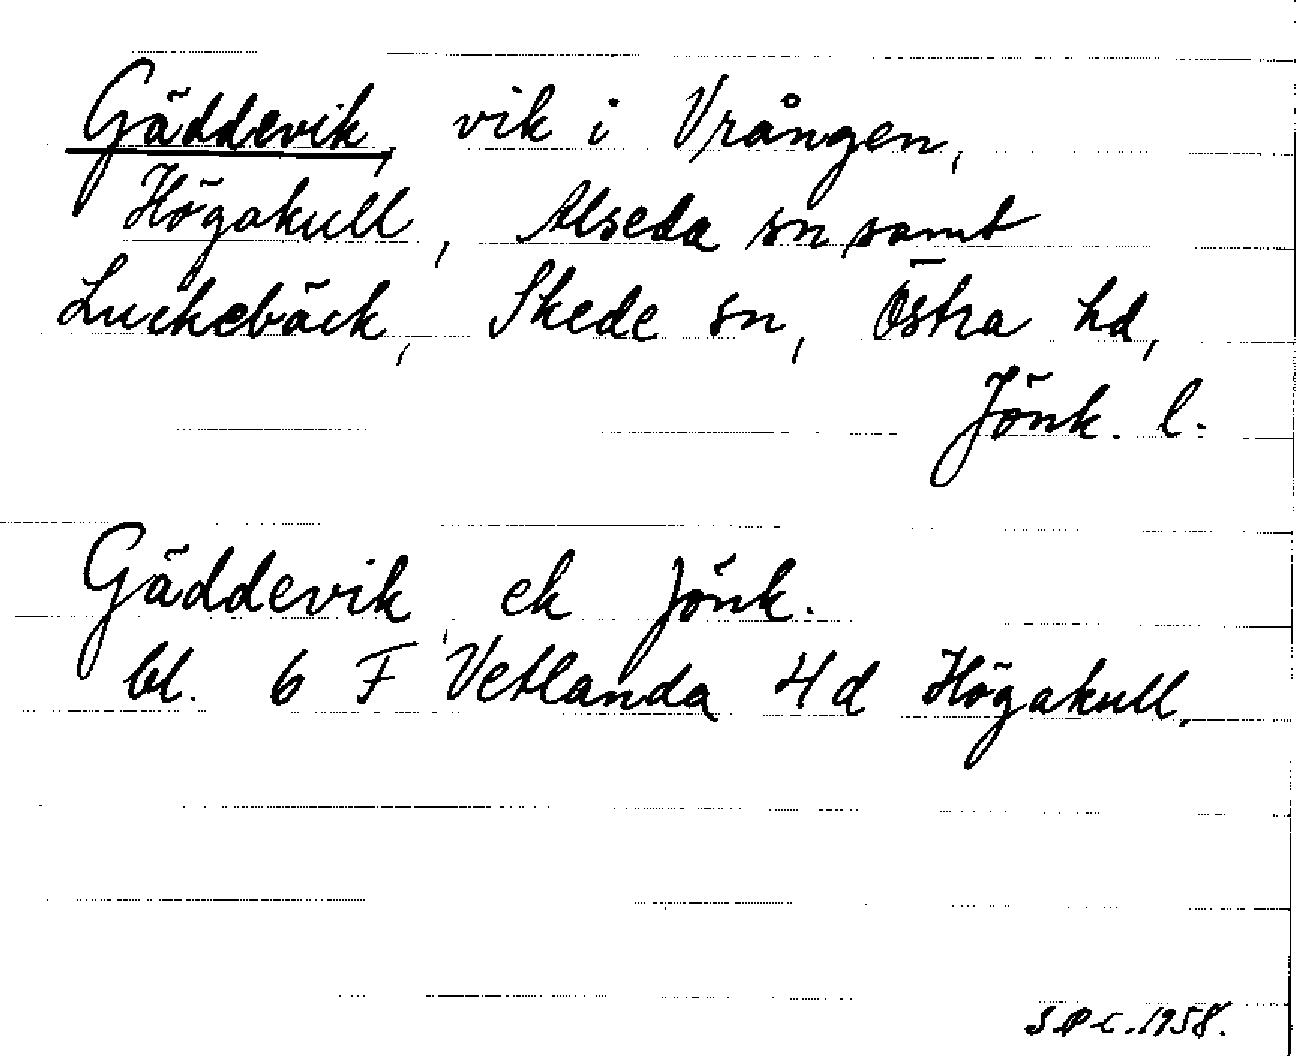 Gäddevik, vik i Vrången,
Högakull, Alseda sn samt
Luckebäck, Skede sn, Östra hd,
Jönk. l.
Gäddevik, ek Jönk.
bl. 6 F Vetlanda 4d Högakull.
1958.